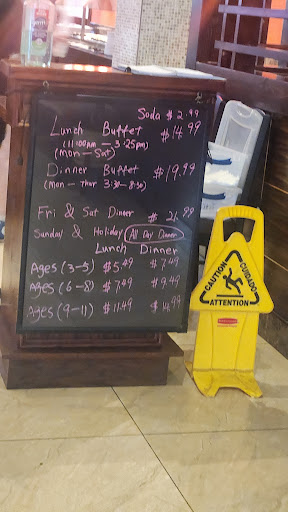 Soda $2.99
Lunch Buffet $14.99
(11:00am - 3:25pm)
(Mon - Sat)
Dinner Buffet $19.99
(Mon - Thur 3:30 - 8:30)
Fri & Sat Dinner $21.99
Sunday & Holiday (All Day Dinner)
Lunch Dinner
Ages (3-5) $5.49 $7.49
Ages (6-8) $7.49 $9.49
Ages (9-11) $11.49 $14.99
CAUTION
CUIDADO
ATTENTION